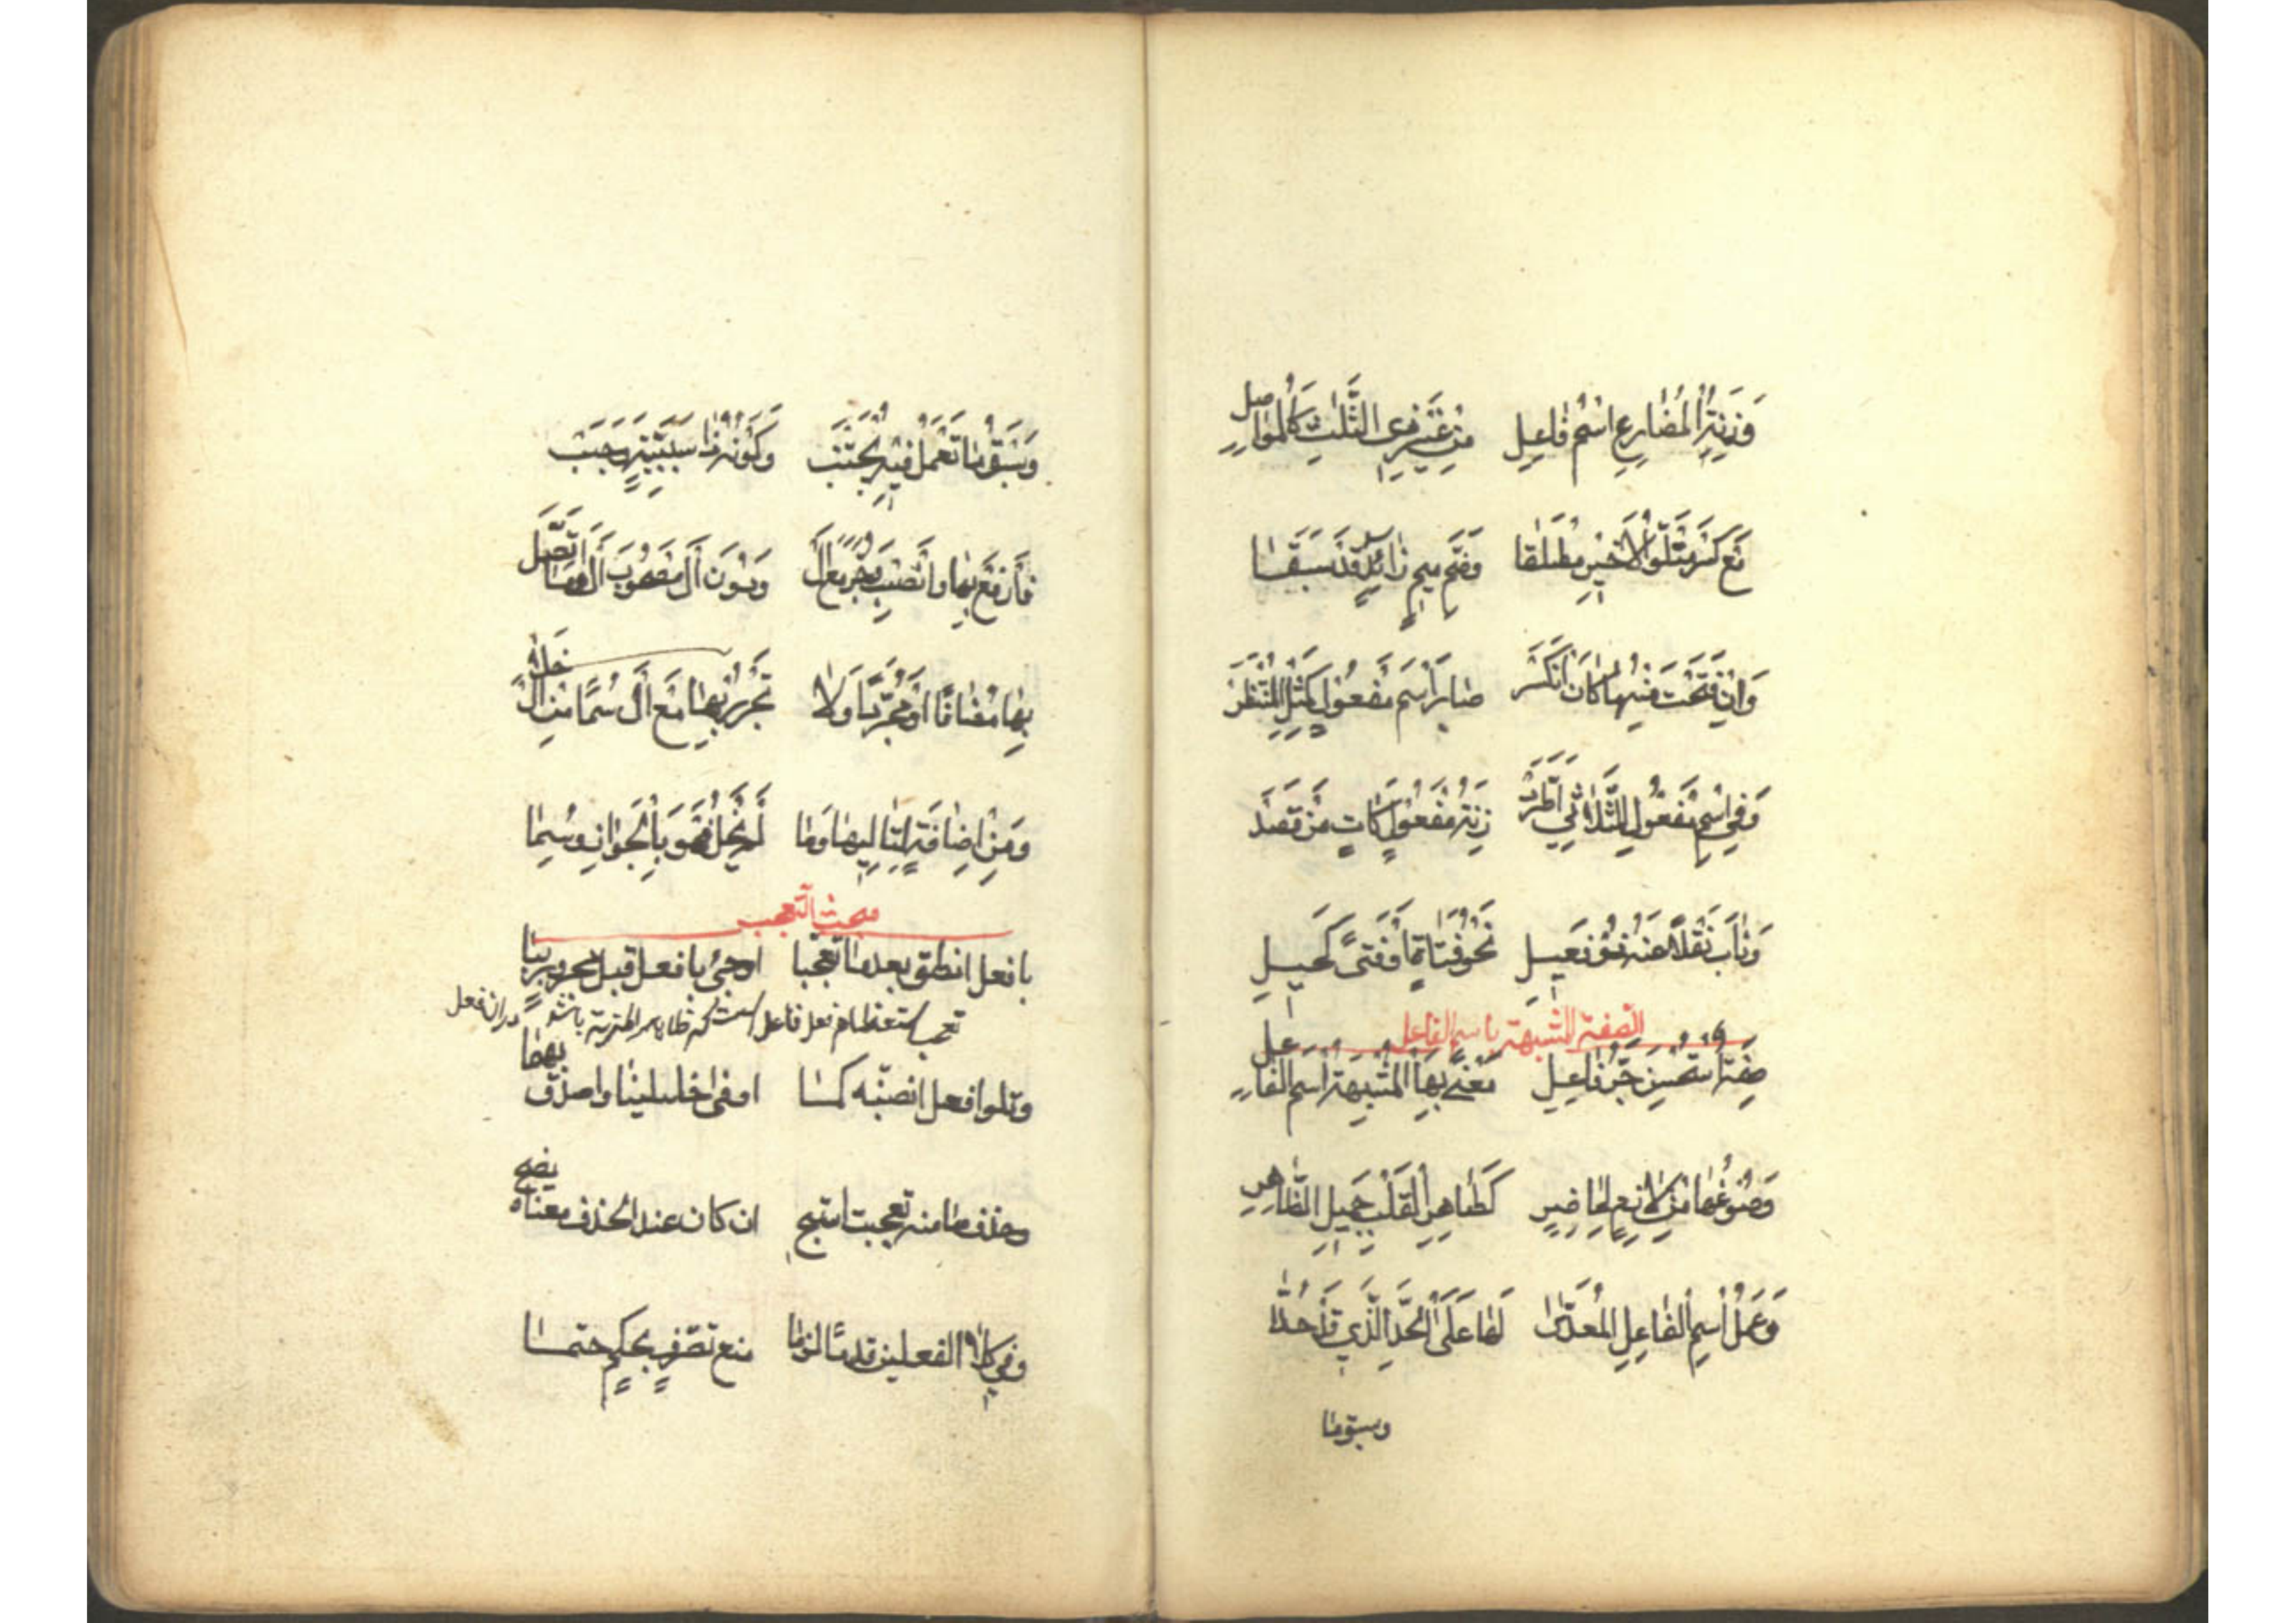 وَزِنَةُ الْمُضَارِعِ اسْمُ فَاعِلِ مِنْ غَيْرِ ذِي الثَّلَاثِ كَالْمُوَاصِلِ
مَعَ كَسْرِ مَتْلُوِّ الْأَخِيْرِ مُطْلَقَا وَضَمِّ مِيمٍ زَائِدٍ قَدْ سَبَقَا
وَاِنْ فَتَحْتَ مِنْهُ مَا كَانَ انْكَسَرْ صَارَ اسْمَ مَفْعُوْلٍ كَمِثْلِ الْمُنْتَظَرْ
وَفِي اسْمِ مَفْعُوْلِ الثُّلَاثِي اطَّرَدْ زِنَةُ مَفْعُوْلٍ كَاٰتٍ مِنْ قَصَدْ
وَنَابَ نَقْلًا عَنْهُ ذُوْ فَعِيْلِ نَحْوُ فَتَاةٍ اَوْ فَتًى كَحِيْلِ
الصفة المشبهة باسم الفاعل
صِفَةٌ اسْتُحْسِنَ جَرُّ فَاعِلِ مَعْنًى بِهَا الْمُشْبِهَةُ اسْمَ الْفَاعِلِ
وَصَوْغُهَا مِنْ لَازِمٍ لِحَاضِرِ كَطَاهِرِ الْقَلْبِ جَمِيْلِ الظَّاهِرِ
وَعَمَلُ اسْمِ الْفَاعِلِ الْمُعَدّٰى لَهَا عَلَى الْحَدِّ الَّذِي قَدْ حُدَّا
وسبق ما
وَسَبْقُ مَا تَعْمَلُ فِيْهِ مُجْتَنَبْ وَكَوْنُهُ ذَا سَبَبِيَّةٍ وَجَبْ
فَارْفَعْ بِهَا وَانْصِبْ وَجُرَّ مَعَ اَلْ وَدُوْنَ اَلْ مَصْحُوْبَ اَلْ وَمَا اتَّصَلْ
بِهَا مُضَافًا اَوْ مُجَرَّدًا وَلَا تَجْرُرْ بِهَا مَعَ اَلْ سُمًا مِنْ اَلْ خَلَا
وَمِنْ اِضَافَةٍ لِتَالِيْهَا وَمَا لَمْ يَخْلُ فَهُوَ بِالْجَوَازِ وُسِمَا
مبحث التعجب
بافعل انطق بعد ما تعجبا اوجئ بافعل قبل مجرور ببا
تعجب استعظام فعل فاعل است كه ظاهر المزية باشد در ان فعل
وتلو افعل انصبنه كما اوفى خليلينا واصدق بهما
وحذف ما منه تعجبت استبح ان كان عند الحذف معناه يضح
وفي كلا الفعلين قدمًا لزما منع تصرفٍ بحكمٍ حتما